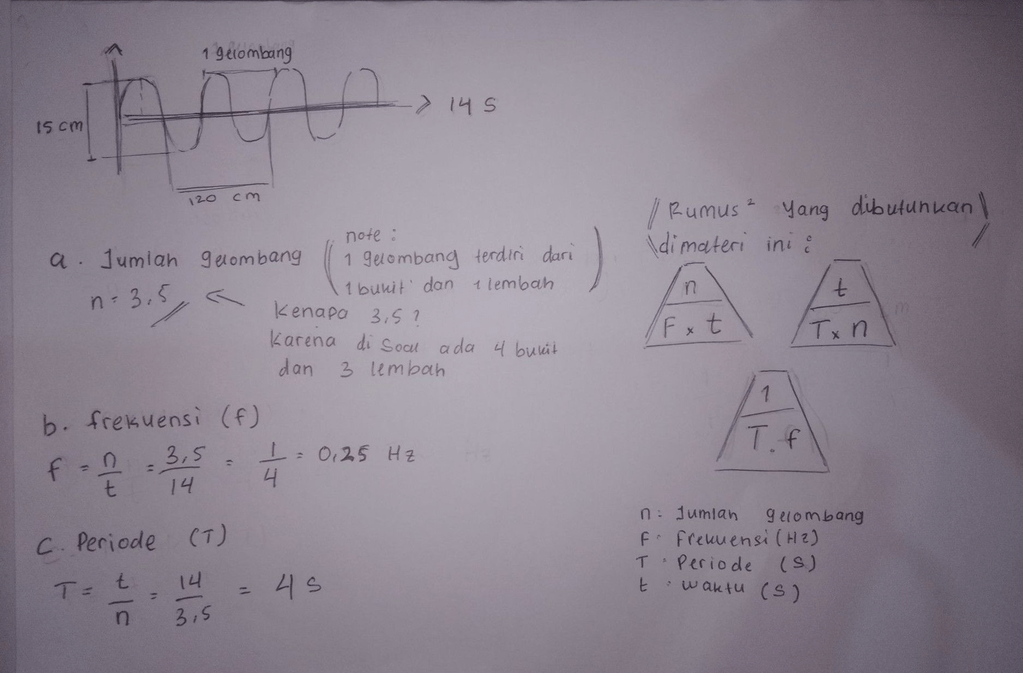 1 gelombang
14 S
15 cm
120 cm
a. Jumlah gelombang
note :
1 gelombang terdiri dari
1 bukit dan 1 lembah
n = 3,5
Kenapa 3,5 ?
Karena di Soal ada 4 bukit
dan 3 lembah
b. frekuensi (f)
f = n/t = 3,5/14 = 1/4 = 0,25 Hz
c. Periode (T)
T = t/n = 14/3,5 = 4 S
Rumus² yang dibutuhkan
dimateri ini :
n
F x t
t
T x n
1
T . f
n : Jumlah gelombang
F : Frekuensi (Hz)
T : Periode (S)
t : waktu (S)